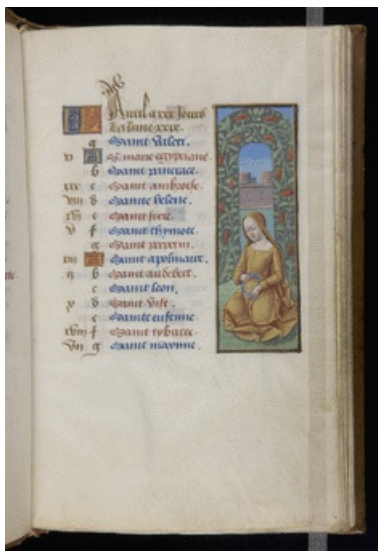 Auril a xxx Jours
La lune xxix.
g Saint Valeri.
xi A S. marie egyptiane
b Saint pancrace.
xix c Saint ambroise.
viii d Sainte helene.
xvi e Saint
v f Saint thymote.
g Saint
xiii A Saint apolinaire
ii b Saint audebert.
c Saint leon.
x d Saint
e Sainte eufemie
xviii f Saint tyburce.
vii g Saint maxime.